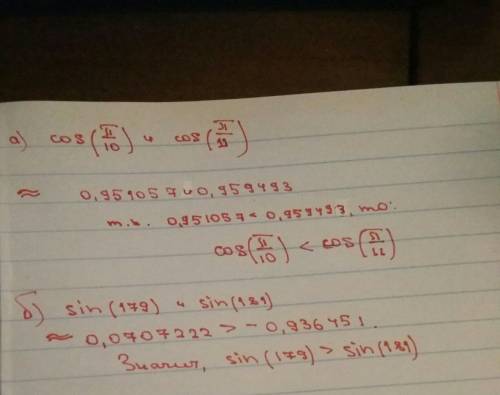 а) cos(π/10) и cos(π/11)
≈ 0,951057 и 0,959493
т.к. 0,951057 < 0,959493, то:
cos(π/10) < cos(π/11)
б) sin(179) и sin(181)
≈ 0,0707222 > -0,936451.
Значит, sin(179) > sin(181)